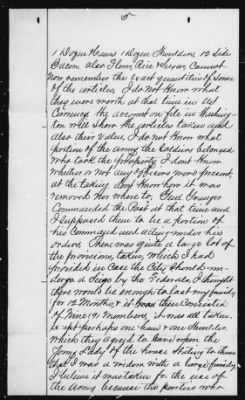 5
1 Dozen Hams 1 Dozen Shoulders 12 sides
Bacon also Flour, Rice & Sugar Cannot
now remember the exact quantities of some
of the articles, I do not know what
they were worth at that time in US
Currency the account on file in Washing-
ton will show the articles taken and
also their value, I do not know what
portion of the army the Soldiers belonged
who took the property I dont know
whether or not any officers were present
at the taking dont know how it was
removed nor where to, Genl
Commanded the Post at that time and
I supposed them to be a portion of
his Command and acting under his
orders, There was quite a large lot
of the provisions, taking which I had
provided in Case the City should un-
dergo a Siege by the Federals, I thought
there would be enough to last my family
for 12 Months & it then Consisted
of Nine (9) members, it was all taken
except perhaps one ham & one Shoulder
which they agreed to leave upon the
Young Lady of the house stating to them
that I was a widow with a large family
I believe it was taken for the use of
the army because the parties who